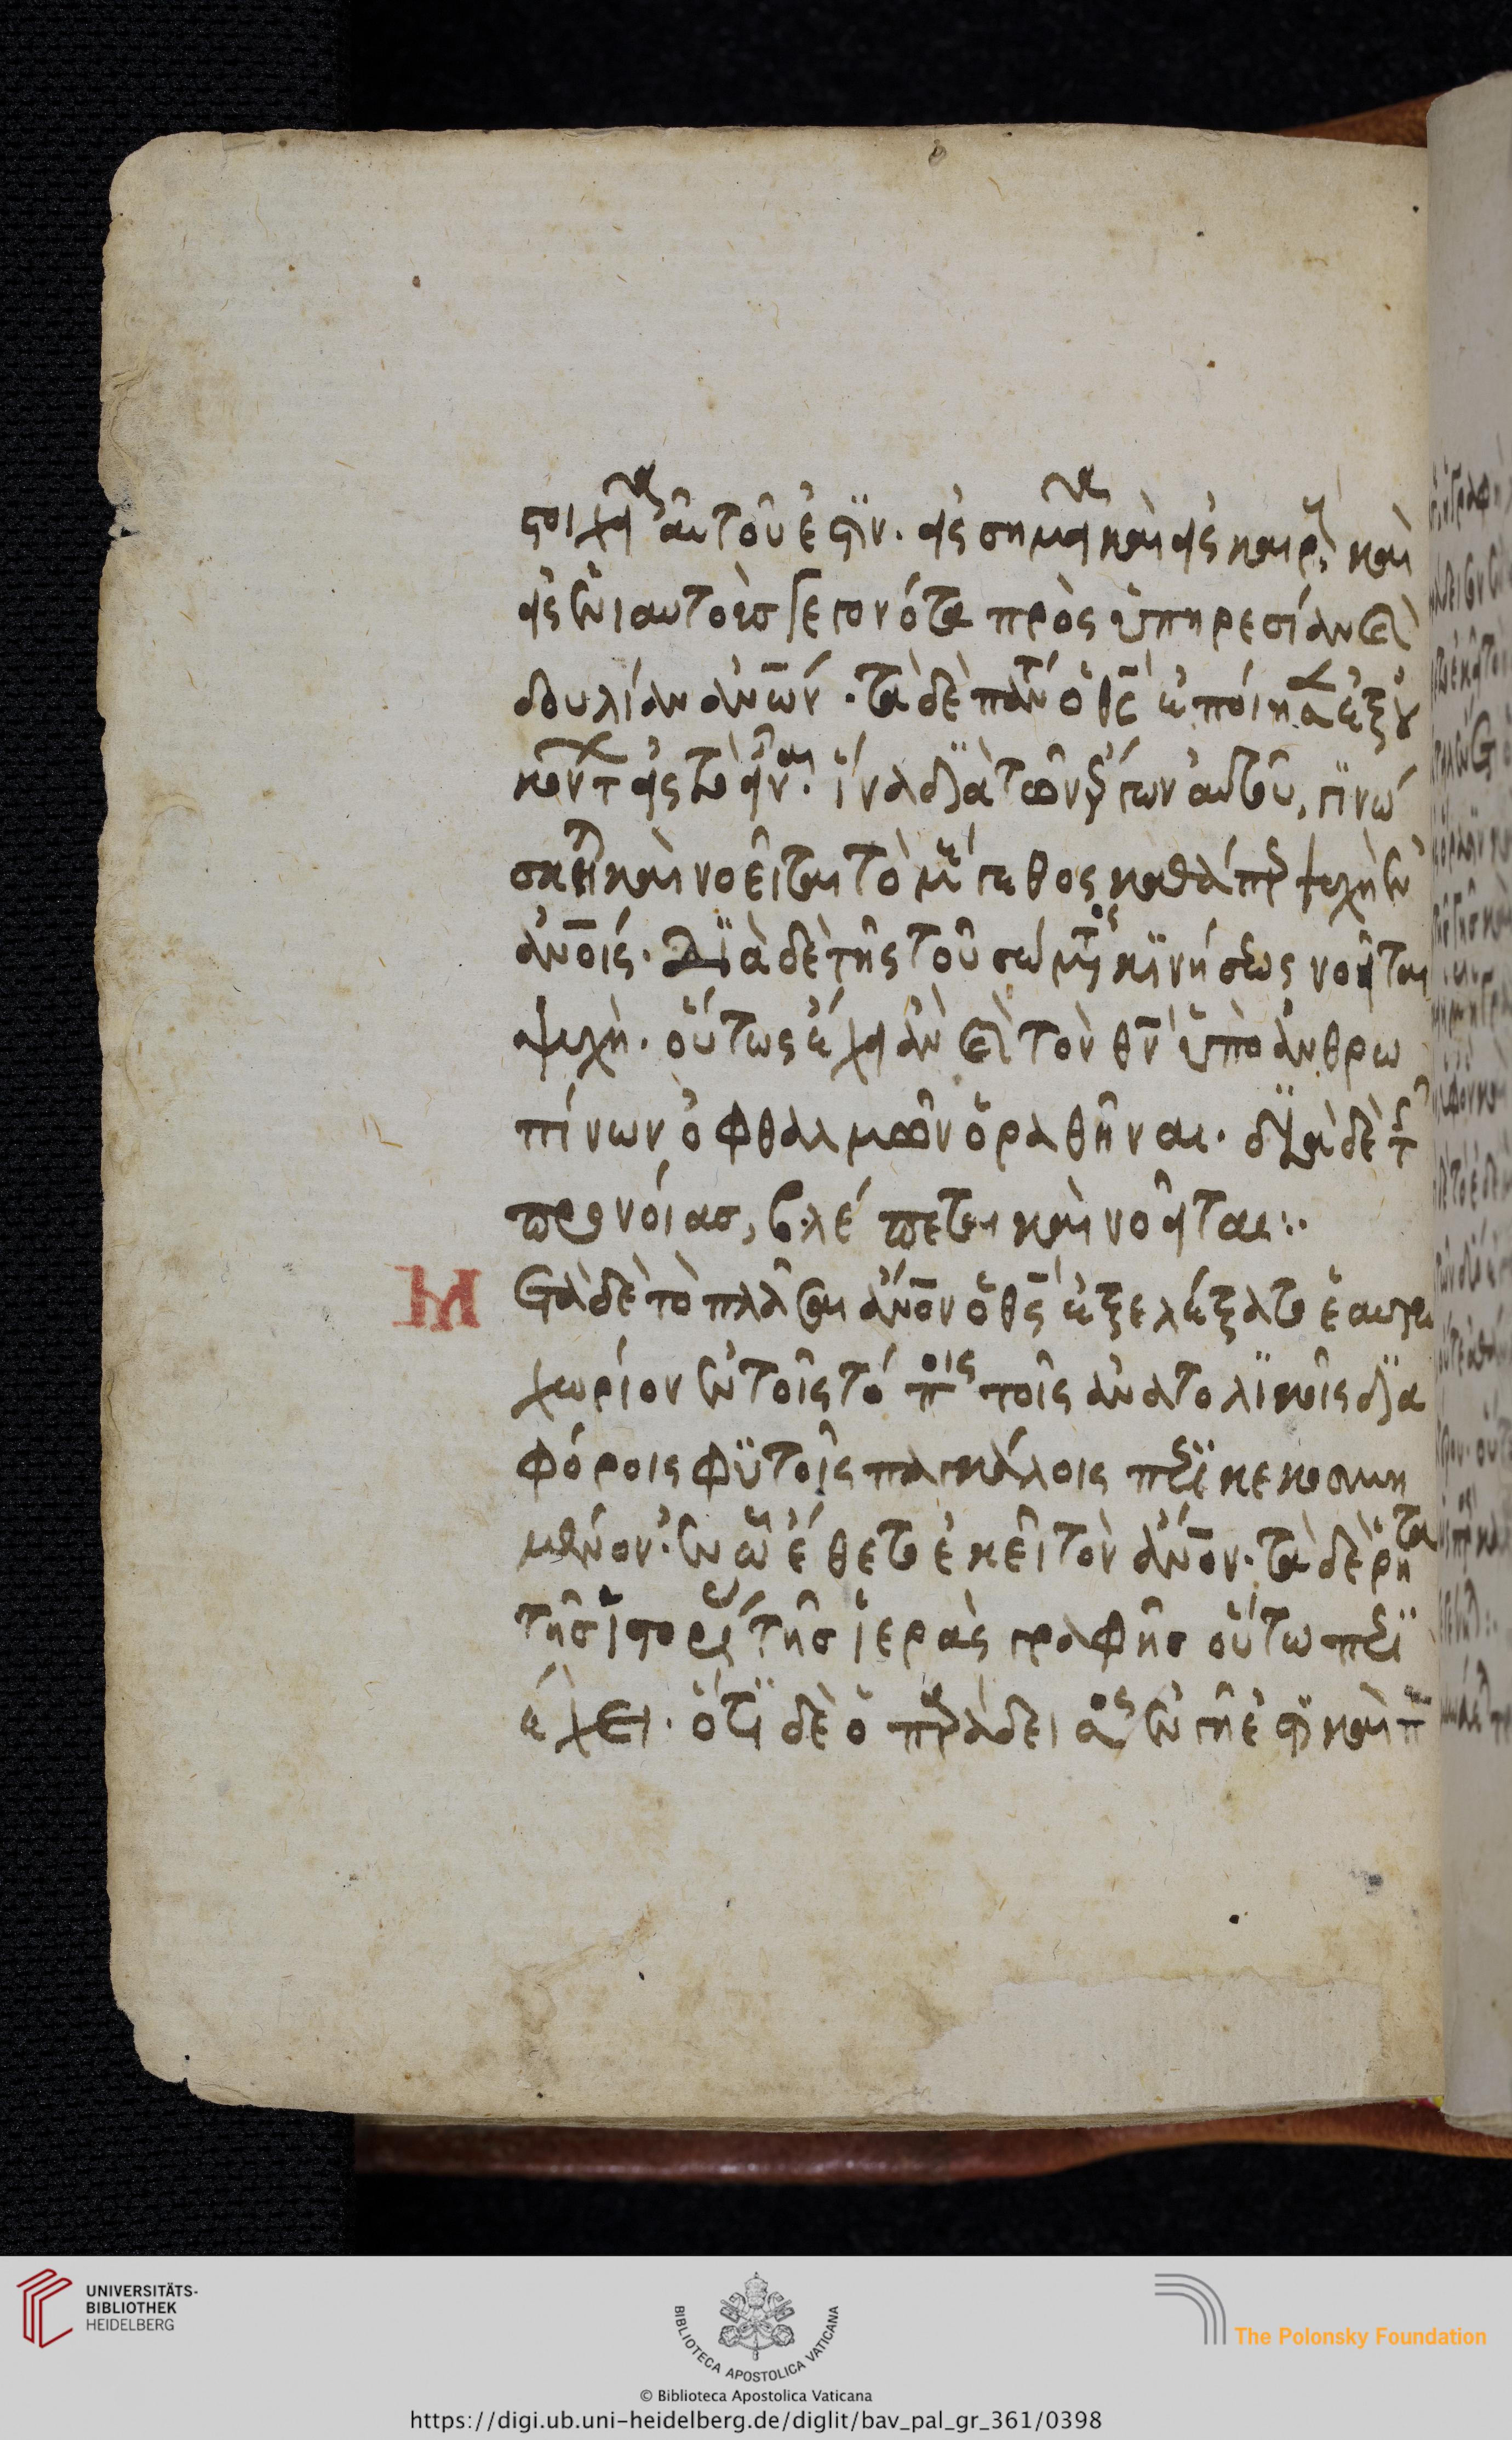 στοιχεῖα αὐτοῦ ἐστϊν. εἰς σημεῖα καὶ εἰς καιροὺς καὶ
εἰς ἐνιαυτοὺσ γεγονότα πρὸς ὑπηρεσίαν καὶ
δουλίαν ἀν̅ων́. τὰ δὲ πάντα ὁ θ̅ς̅ ἐποίησεν ἐξ οὐκ
ὄντων εἰς τὸ εἶναι. ἵνα δϊὰ τῶν ἔργων αὐτοῦ, γϊνώ
σκηται καὶ νοεῖται τὸ μέγεθος καθάπερ ψυχὴ ἐν
ἀν̅οις. Δϊὰ δὲ τῆς τοῦ σώματος κϊνήσεως νοεῖται
ψυχὴ. οὕτως ἔχει ἂν καὶ τὸν θ̅ν̅ ὑπὸ ἀνθρω
πίνων ὀφθαλμῶν ὁραθῆναι. δϊὰ δὲ τῆς
προνοίασ, βλέπεται καὶ νοεῖται:.
Μ Ετὰ δὲ τὸ πλάσαι ἀν̅ον ὁ θ̅ς̅ ἐξελέξατο ἑαυτῶ
χωρίον ἐν τοῖς τόποις τοῖς ἀνατολϊκοῖς δϊα
φόροις φϋτοῖς παγκάλοις περϊκεκοσμη
μένον. ἐν ὧ ἔθετο ἐκεῖ τὸν ἄν̅ον. τὰ δὲ ῥητὰ
τῆσ ἱστορίας τῆσ ἱερὰς γραφῆσ οὕτω περϊ
έχει. ὅτϊ δὲ ὁ παράδεισος ἐν γῆ ἐστϊ καὶ
UNIVERSITÄTS-
BIBLIOTHEK
HEIDELBERG
BIBLIOTECA APOSTOLICA VATICANA
The Polonsky Foundation
© Biblioteca Apostolica Vaticana
https://digi.ub.uni-heidelberg.de/diglit/bav_pal_gr_361/0398